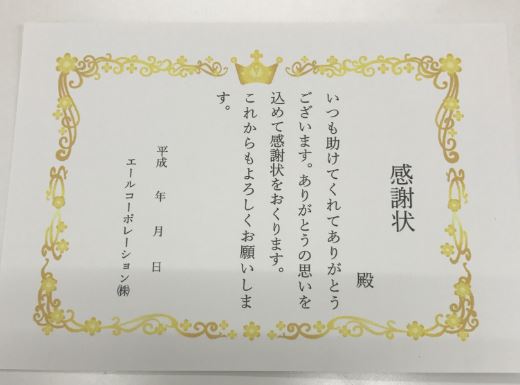 感謝状
殿
いつも助けてくれてありがとう
ございます。ありがとうの思いを
込めて感謝状をおくります。
これからもよろしくお願いしま
す。
平成　年　月　日
エールコーポレーション㈱